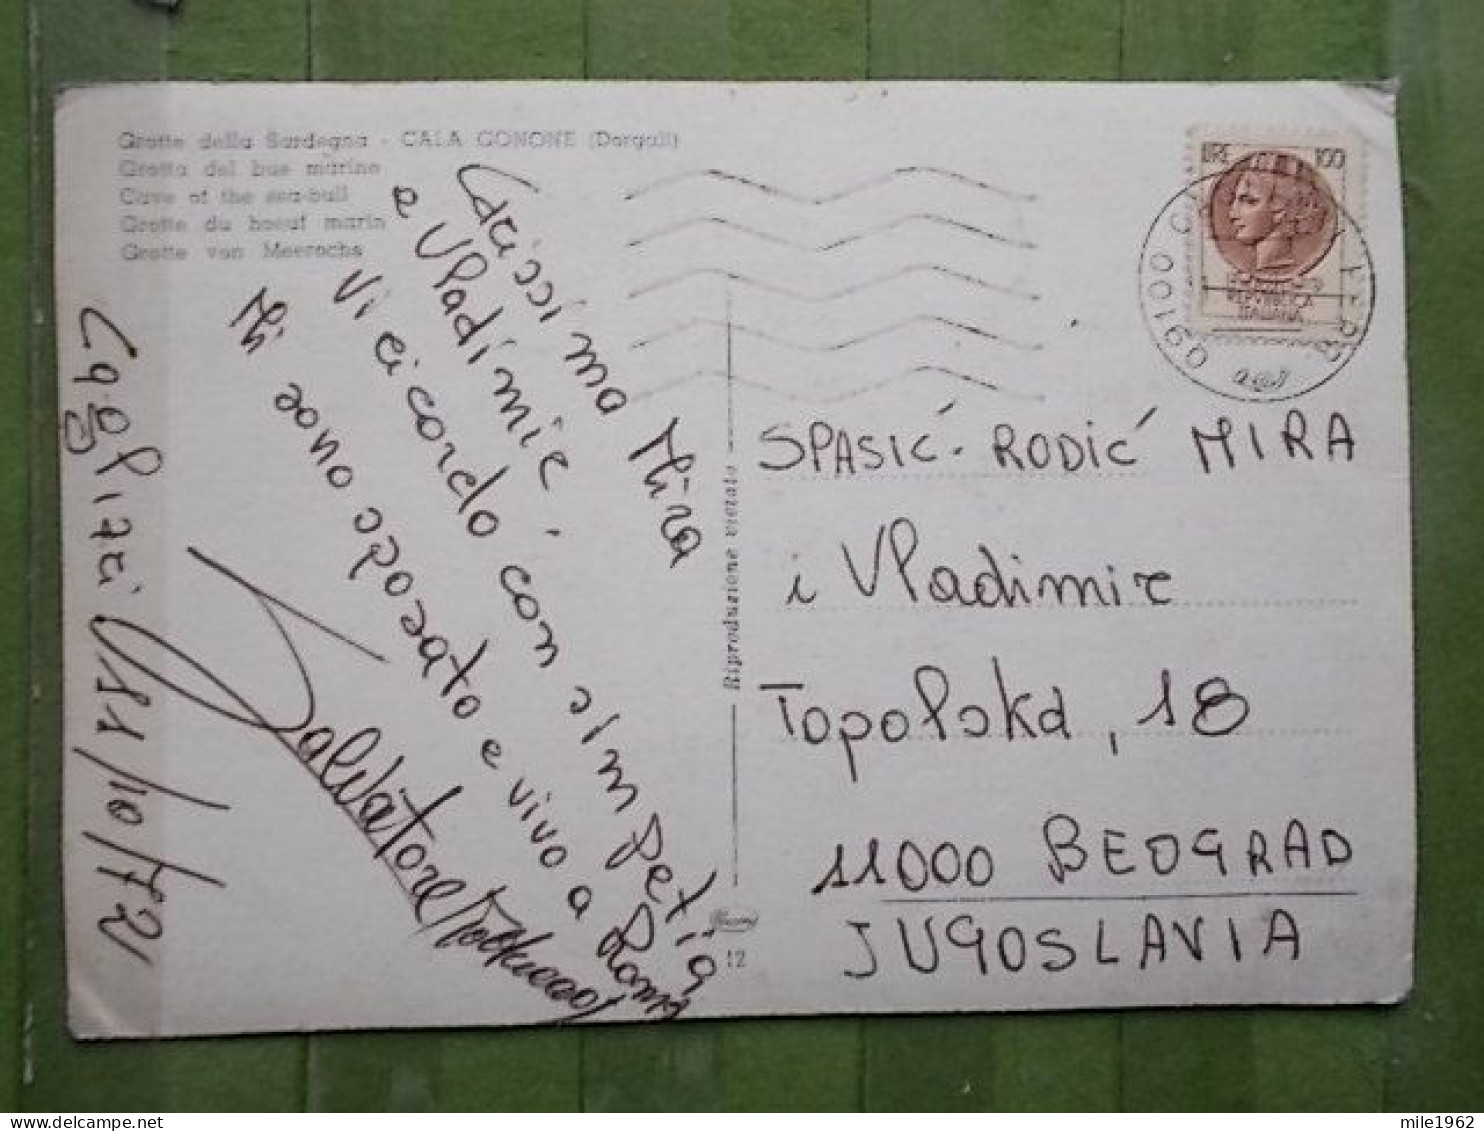 Grotte della Sardegna - CALA GONONE (Dorgali)
Grotta del bue marino
Cave of the sea-bull
Grotte du boeuf marin
Grotte von Meerochs
Carissima Mira
e Vladimir.
Vi ricordo con simpatia
Mi sono sposato e vivo a Roma
Salvatore
Cagliari 11/10/72
Riproduzione vietata
12
LIRE 100
REPVBBLICA
ITALIANA
09100
SPASIĆ-RODIĆ MIRA
i Vladimir
Topolska, 18
11000 BEOGRAD
JUGOSLAVIA
mile1962